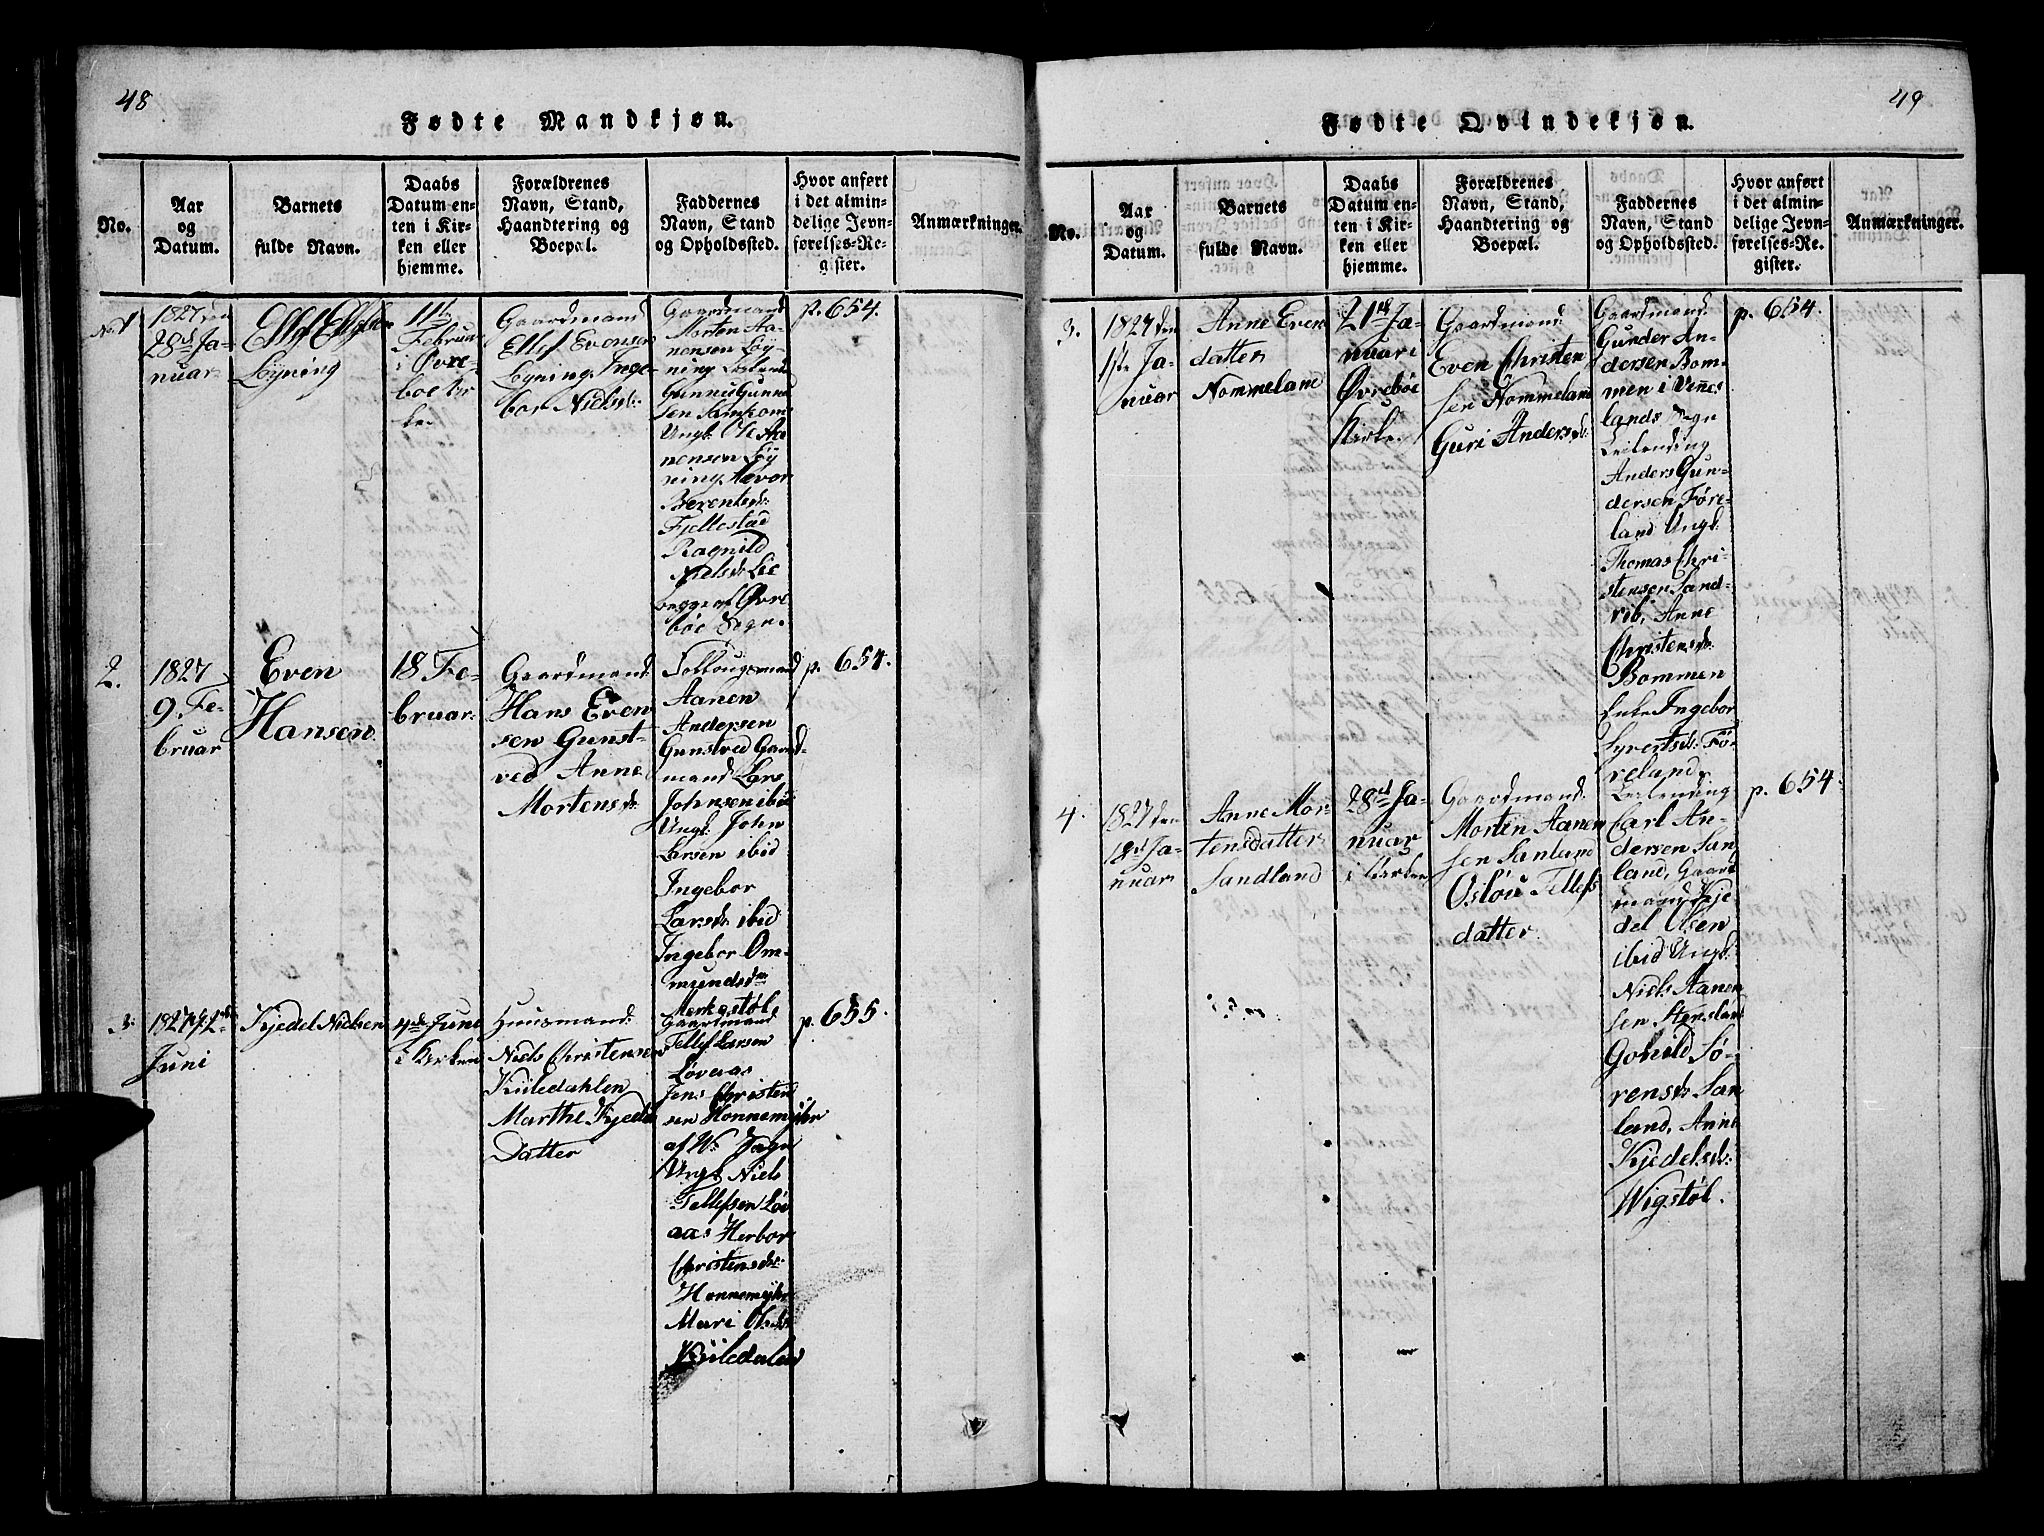 48
Fødte Mandkjøn.
No.
Aar
og
Datum.
Barnets
fulde Navn.
Daabs
Datum en-
ten i Kir-
ken eller
hjemme.
Forældrenes
Navn, Stand,
Haandtering og
Boepæl.
Faddernes
Navn, Stand
og Opholdssted.
Hvor anført
i det almin-
delige Jevn-
førelses-Re-
gister.
Anmærkninger.
No 1
1827 den
28de Ja-
nuar
Ellef Ellefsen
Løyning
11te
Februar
i Øvre-
boe Kir-
ke.
Gaardmand
Ellef Evensen
Løyning, Inge-
bor Nielsdr
Gaardmand
Morten Aa-
nensen Løy-
ning
Gunnu Gunnu
sen Samkom
Ungk. Ole Aa-
nensen Løy
ning, Aavor
Berentsdr
Fjellestad
Ragnild
Nielsdr Lie
begge af Øvre
bøe Sogn.
p. 654.
2.
1827
9. Fe-
bruar
Even
Hansen
18 Fe-
bruar
Gaardmand
Hans Even
sen Gunst-
ved Anne
Mortensdr
Follougsmand
Aanen
Andersen
Gunstved Gaard-
mand Lars
Johnsen ibid
Ungk. John
Larsen ibid
Ingebor
Larsdr ibid
Ingebor Om-
mundsdr
Merkestøl
p. 654.
3.
1827
Juni
Kjedel Nielsen
4de June
i Kirken
Huusmand
Niels Christensen
Kuledahlen
Marthe Kjedels
Datter
Gaardmand
Tellef Larsen
Løveaas
Jens Christen
sen Honnemyhr
af Ws Sogn
Ungk Niels
Tellefsen Løv
aas Herbor
Christensdr
Honnemyhr
Mari Olsdr
Kuledalen
p. 655.
49
Fødte Qvindekjøn.
No.
Aar
og
Datum.
Barnets
fulde Navn.
Daabs
Datum en-
ten i Kir-
ken eller
hjemme.
Forældrenes
Navn, Stand,
Haandtering og
Boepæl.
Faddernes
Navn, Stand
og Opholdssted.
Hvor anført
i det almin-
delige Jevn-
førelses-Re-
gister.
Anmærkninger.
3.
1827 den
1ste Ja-
nuar
Anne Even
datter
Nommeland
21de Ja-
nuar i
Øvrebøe
Kirke.
Gaardmand
Even Christen
sen Nommeland
Guri Andersdr
Gaardmand
Gunder An-
dersen Bom-
men i Vennes
lands Sogn
Leilending
Anders Gun-
dersen Føre-
land Ungk.
Thomas Chri-
stensen Sand-
rib, Anne
Christensdr
Bommen
Enke Ingebor
Syvertsdr Fø-
reland,
p. 654.
4.
1827 den
18de Ja-
nuar
Anne Mor-
tensdatter
Sandland
28de Ja-
nuar
i Kirken
Gaardmand
Morten Aanen
sen Sanland
Osløu Tellefs
datter.
Leilending
Carl An-
dersen San
land, Gaard
mand Kje-
del Olsen
ibid Ungk.
Niels Aanen
sen
Gohild Sø-
rensdr San
land, Anne
Kjedelsdr
Wigstøl.
p. 654.